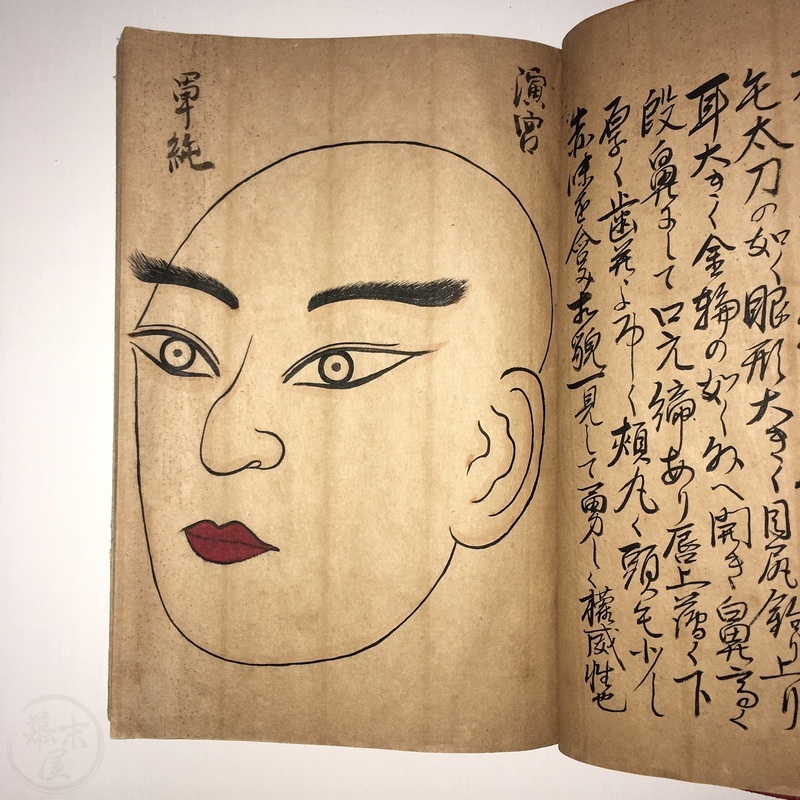 毛太刀の如く眼形大きく目尻り上り
耳大きく金輪の如く外へ開き鼻高く
段鼻にして口元締あり唇上薄く下
厚く歯並く頬丸く頭毛少し
赤味を含み相貌一見して勇しく権威性也
演宮
單純
幕末屋